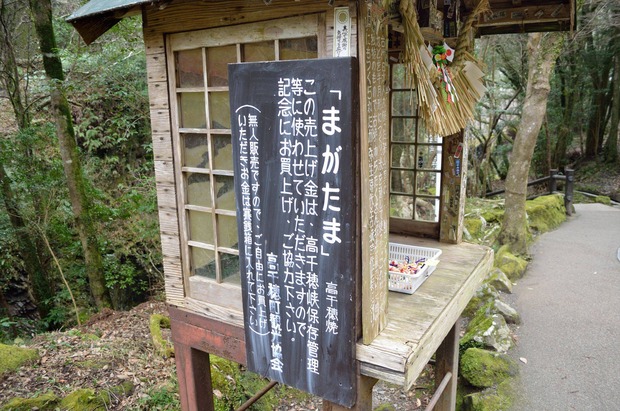 「まがたま」
高千穂焼
この売上げ金は、高千穂峡保存管理
等に使わせていただきますので
記念にお買上げ、ご協力下さい。
高千穂町観光協会
(無人販売ですので、ご自由にお買上げ
いただきお金は賽銭箱に入れて下さい)